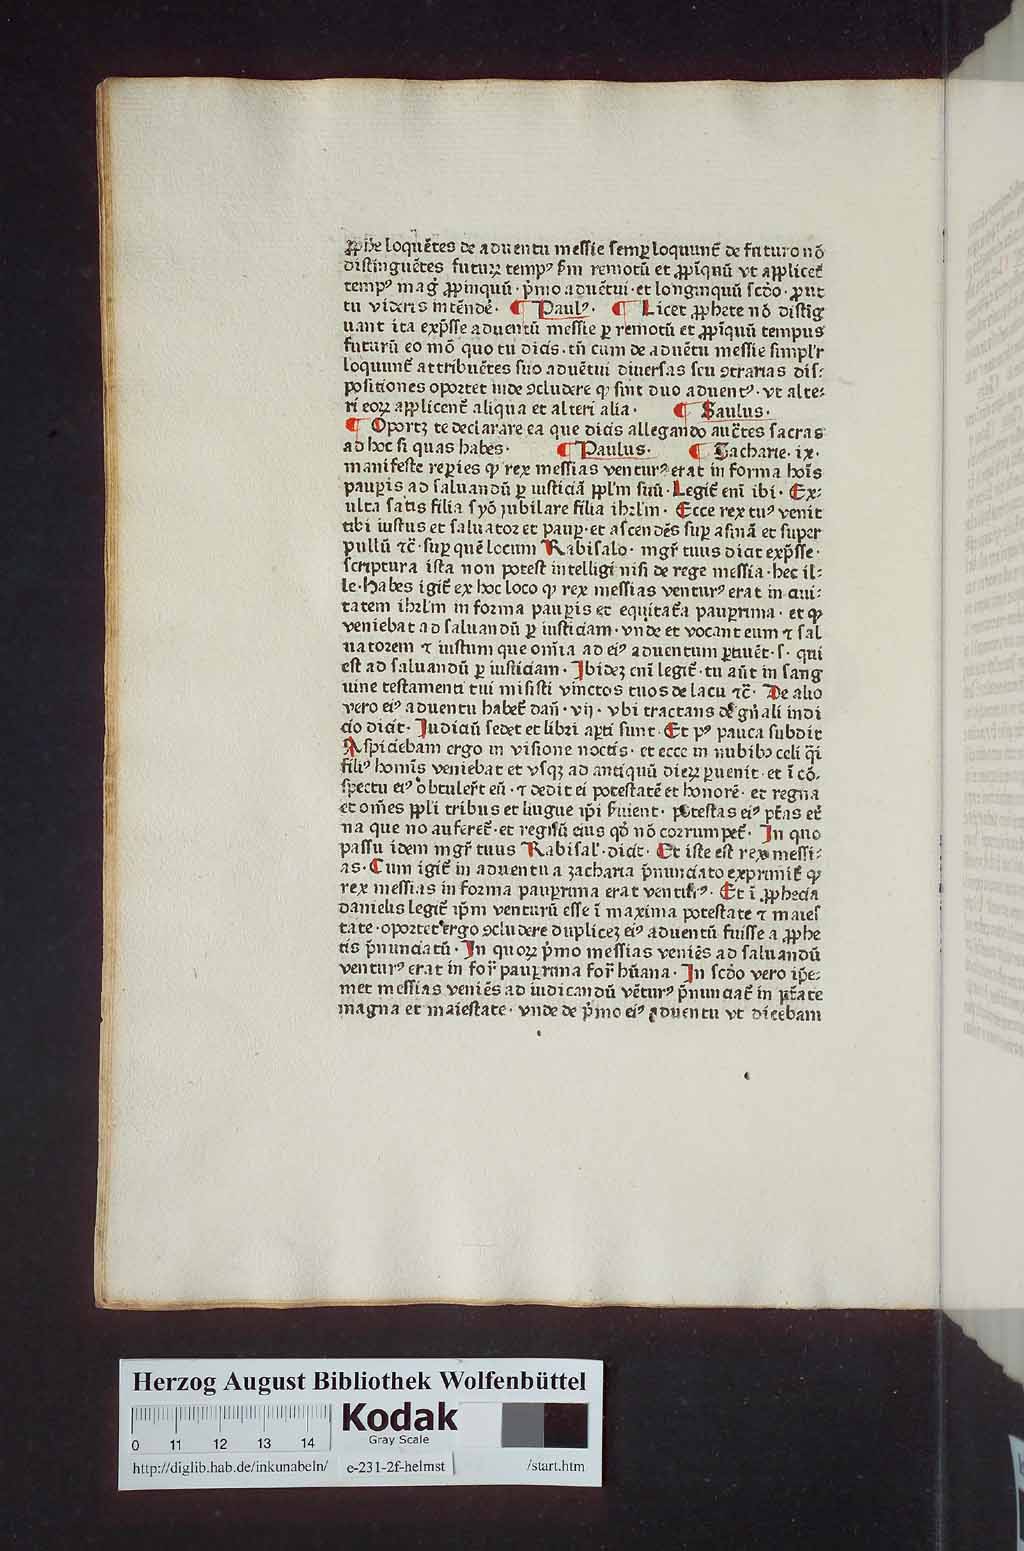 ꝓphe loquētes de aduentu messie semꝑ loquunt᷑ de futuro nō
distinguētes futuꝝ tempꝰ sm remotū et ꝓpīquū vt applicet᷑
tempꝰ magꝭ ꝓpinquū · p̄mo aduētui · et longinquū scd̄o · ꝓut
tu videris intēnde᷑ · ¶ Paulꝰ · ¶ Licet ꝓphete nō disti̅g
uant ita exp̄sse aduentū messie ꝑ remotū et ꝓpīquū tempus
futurū eo mō quo tu dicis · tn̄ cum de aduētu messie simpl'r
loquunt᷑ attribuētes suo aduētui diuersas seu ꝯtrarias dis⸗
positiones oportet inde ꝯcludere ꝙ sint duo aduentꝰ · vt alte⸗
ri eoꝝ applicent᷑ aliqua et alteri alia · ¶ Saulus ·
¶ Oportꝫ te declarare ea que dicis allegando auc̄tes sacras
ad hoc si quas habes · ¶ Paulus · ¶ Zacharie · ix ·
manifeste reꝑies ꝙ rex messias venturꝰ erat in forma hoīs
pauꝑis ad saluandū ꝑ iusticiā ppl'm suū · Legit᷑ eni̅ ibi · Ex⸗
ulta satis filia syō jubilare filia ihrl'm · Ecce rex tuꝰ venit
tibi iustus et saluator et pauꝑ · et ascendēs suꝑ asinā et super
pullū ⁊c̄ · suꝑ quē locum Rabisalo · mgr̄ tuus dicit exp̄sse ·
scriptura ista non potest intelligi nisi de rege messia · hec il⸗
le · Habes igit᷑ ex hoc loco ꝙ rex messias venturꝰ erat in ciui⸗
tatem ihrl'm in forma pauꝑis et equitat᷑a pauꝑrima · et ꝙ
veniebat ad saluandū ꝑ iusticiam · vnde et vocant eum ⁊ sal
uatorem ⁊ iustum que om̄ia ad eiꝰ aduentum ꝑtinēt · s · qui
est ad saluandū ꝑ iusticiam · Ibideꝫ eni̅ legit᷑ · tu aūt in sang
uine testamenti tui misisti vinctos tuos de lacu ⁊c̄ · De alio
vero eiꝰ aduentu habet᷑ dan̄ · vij · vbi tractans de gn̄ali iudi
cio dicit · Judiciū sedet et libri aꝑti sunt · Et pꝰ pauca subdit
Aspiciebam ergo in visione noctis · et ecce in nubibꝫ celi q̄i
filiꝰ homīs veniebat et vsqꝫ ad antiquū dieꝝ ꝑuenit · et ī cō⸗
spectu eiꝰ obtuler̄t eū · ⁊ dedit ei potestatē et honorē · et regna
et om̄es ppl̄i tribus et lingue ip̄i s̄uient · potestas eiꝰ pt̄as et᷑
na que no auferet᷑ · et regnū eius qd̄ nō corrumpet᷑ · In quo
passu idem mgr̄ tuus Rabisal' · dicit · Et iste est rex messi⸗
as · Cum igit᷑ in aduentu a zacharia p̄nunciato exprimit᷑ ꝙ
rex messias in forma pauꝑrima erat venturꝰ · Et ī ꝓphecia
danielis legit᷑ ip̄m venturū esse ī maxima potestate ⁊ maies
tate · oportet ergo ꝯcludere dupliceꝫ eiꝰ aduentū fuisse a ꝓphe
tis p̄nunciatū · In quoꝝ p̄mo messias veniēs ad saluandū
venturꝰ erat in for̄ pauꝑrima for̄ hūana · In scd̄o vero ip̄e⸗
met messias veniēs ad iudicandū vēturꝰ p̄nunciat᷑ in pt̄ate
magna et maiestate · vnde de p̄mo eiꝰ aduentu vt dicebam
Herzog August Bibliothek Wolfenbüttel
0 11 12 13 14
Kodak
Gray Scale
http://diglib.hab.de/inkunabeln/ e-231-2f-helmst /start.htm